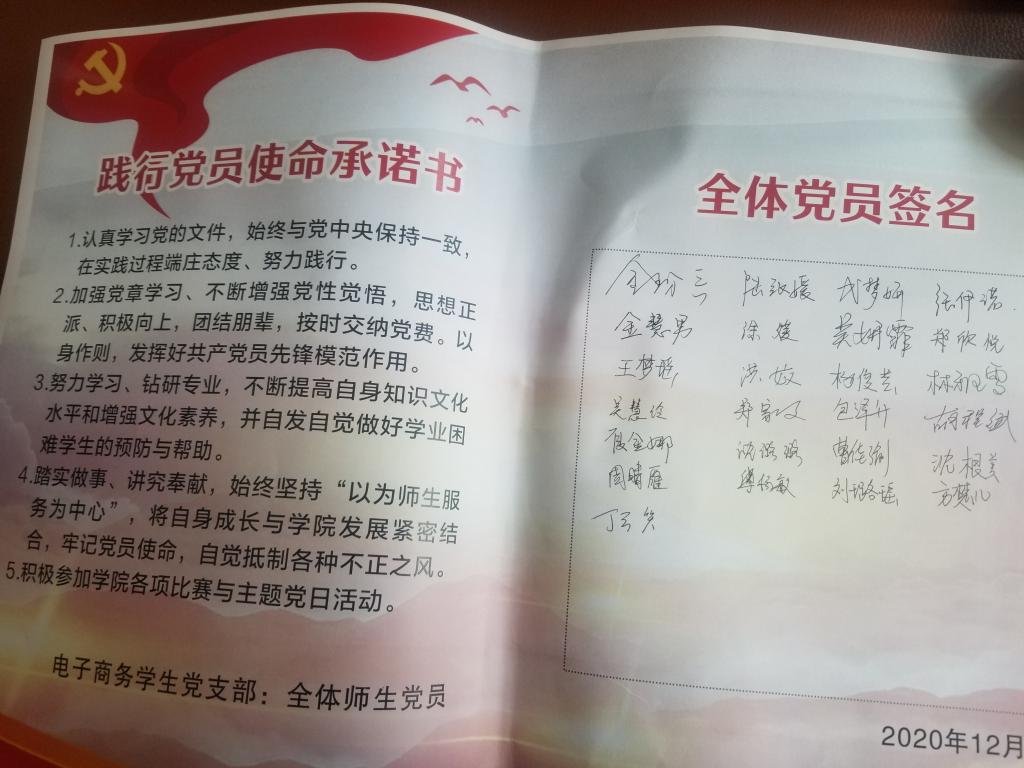 践行党员使命承诺书
1.认真学习党的文件，始终与党中央保持一致，
在实践过程端庄态度、努力践行。
2.加强党章学习、不断增强党性觉悟，思想正
派、积极向上，团结朋辈，按时交纳党费。以
身作则，发挥好共产党员先锋模范作用。
3.努力学习、钻研专业，不断提高自身知识文化
水平和增强文化素养，并自发自觉做好学业困
难学生的预防与帮助。
4.踏实做事、讲究奉献，始终坚持“以为师生服
务为中心”，将自身成长与学院发展紧密结
合，牢记党员使命，自觉抵制各种不正之风。
5.积极参加学院各项比赛与主题党日活动。
电子商务学生党支部：全体师生党员
全体党员签名
张伊诺
金慧男 徐俊 吴妍霏 郑欣悦
王梦瑶 洪姣 杨俊芸
包泽升 胡程斌
殷金娜 沈璐璐 沈樱美
周晴雁 方楚儿
2020年12月